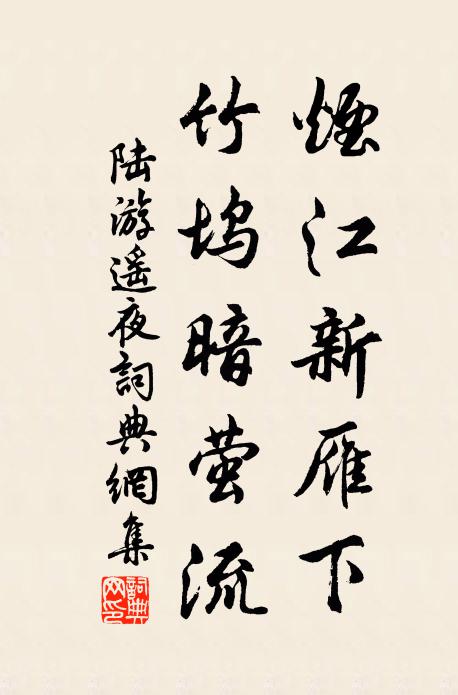 煙江新雁下
竹坞暗萤流
陆游遥夜詞典網集
詞典